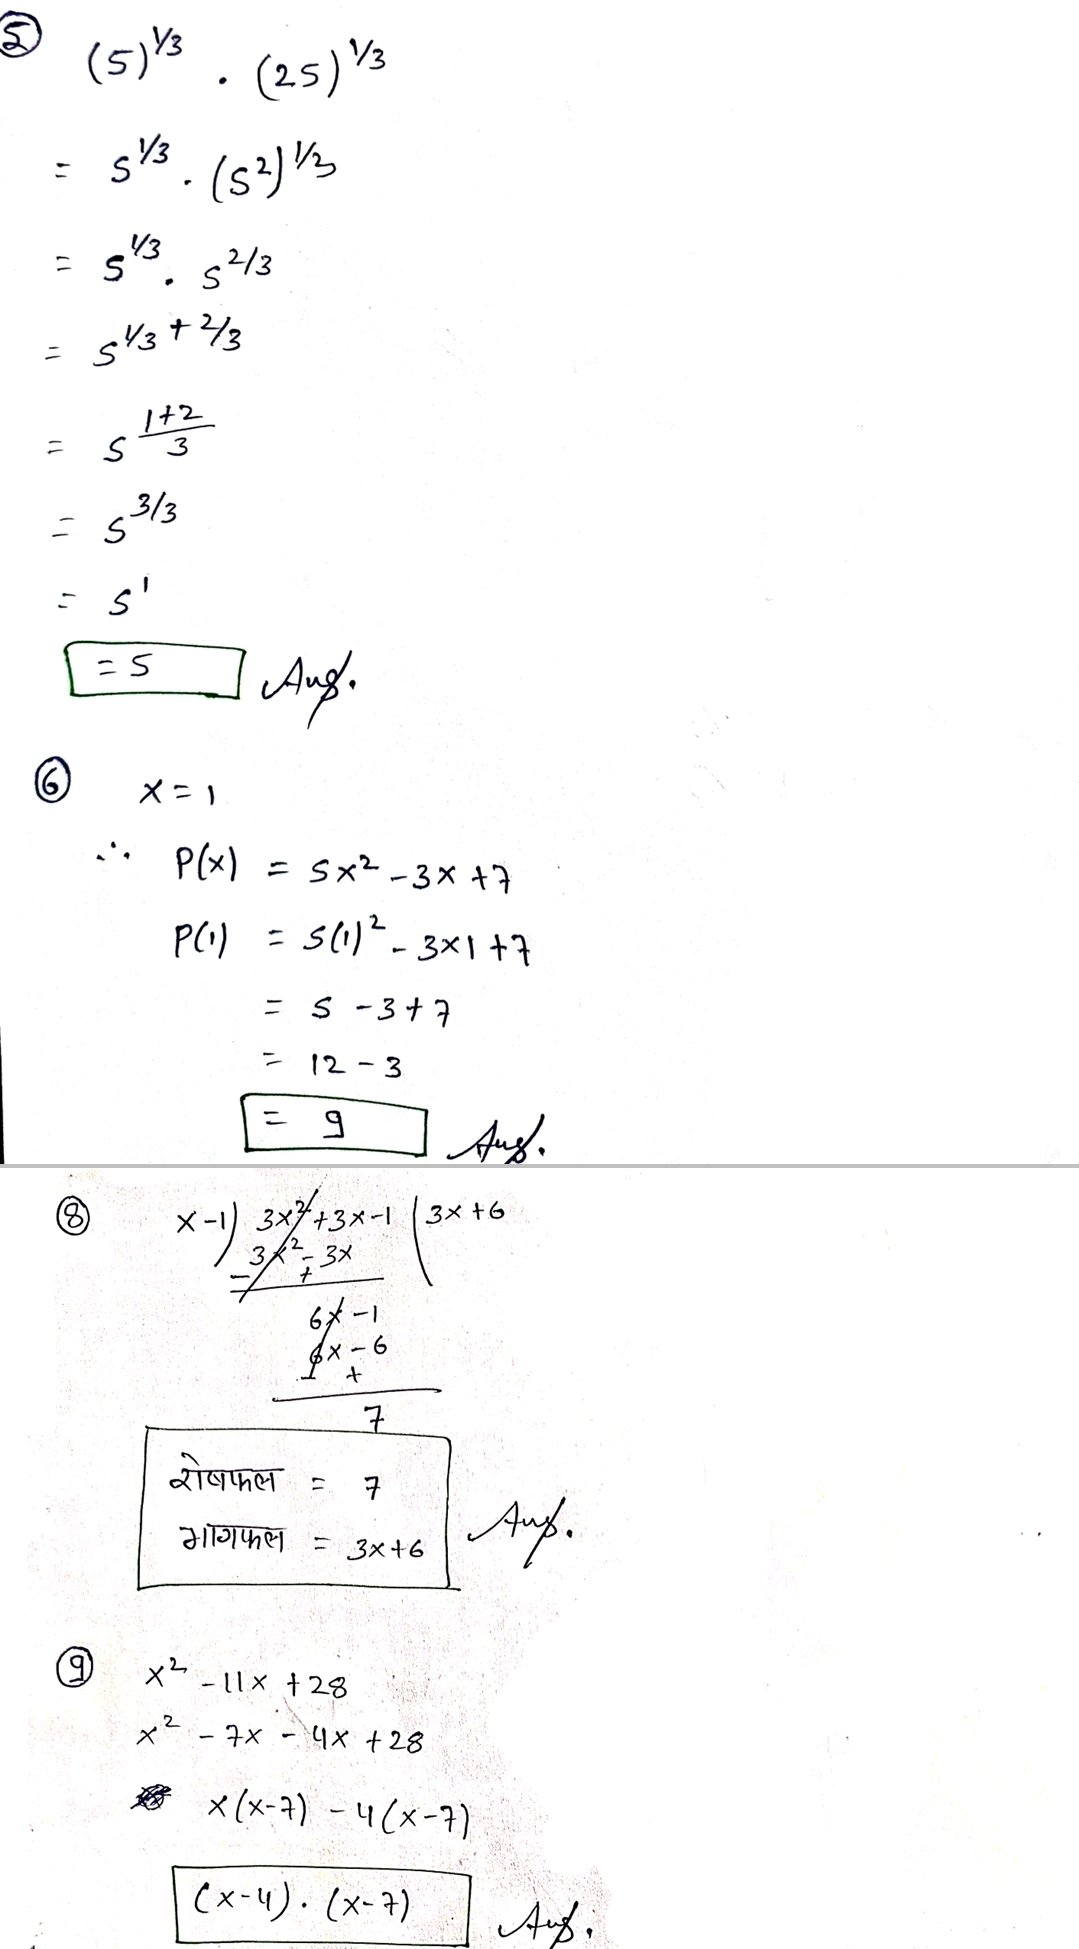 ⑤ (5)^1/3 . (25)^1/3
= 5^1/3 . (5^2)^1/3
= 5^1/3 . 5^2/3
= 5^1/3 + 2/3
= 5^(1+2)/3
= 5^3/3
= 5^1
= 5 Ans.
⑥ x = 1
∴ P(x) = 5x² - 3x + 7
P(1) = 5(1)² - 3×1 + 7
= 5 - 3 + 7
= 12 - 3
= 9 Ans.
⑧ x-1) 3x² + 3x - 1 (3x + 6
3x² - 3x
- +
6x - 1
6x - 6
- +
7
शेषफल = 7
भागफल = 3x+6 Ans.
⑨ x² - 11x + 28
x² - 7x - 4x + 28
x(x-7) - 4(x-7)
(x-4) . (x-7) Ans.